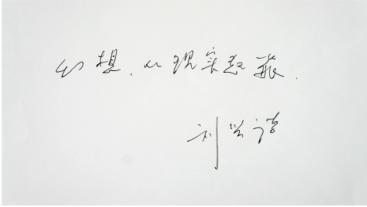 幻想，从现实起飞．
刘兴诗